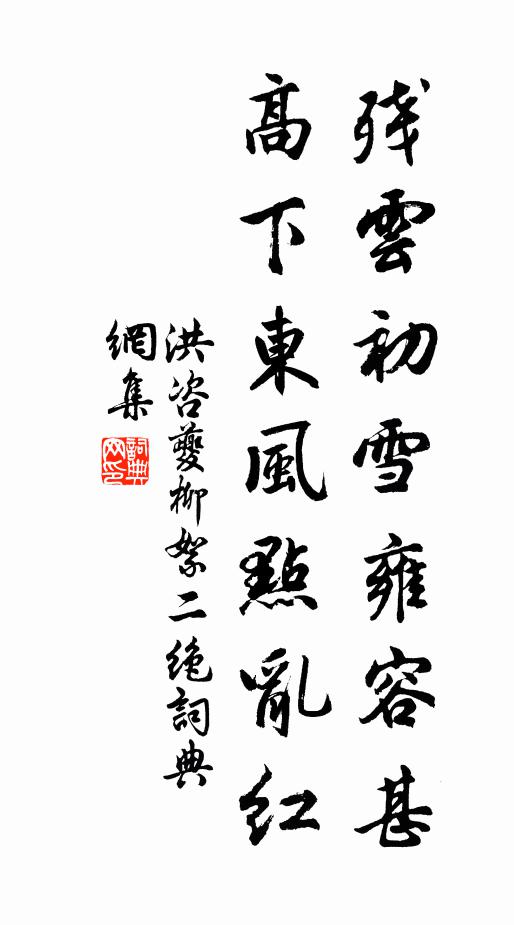 残雲初雪雍容甚
高下東風點亂紅
洪咨夔柳絮二絶詞典
網集
詞典网印